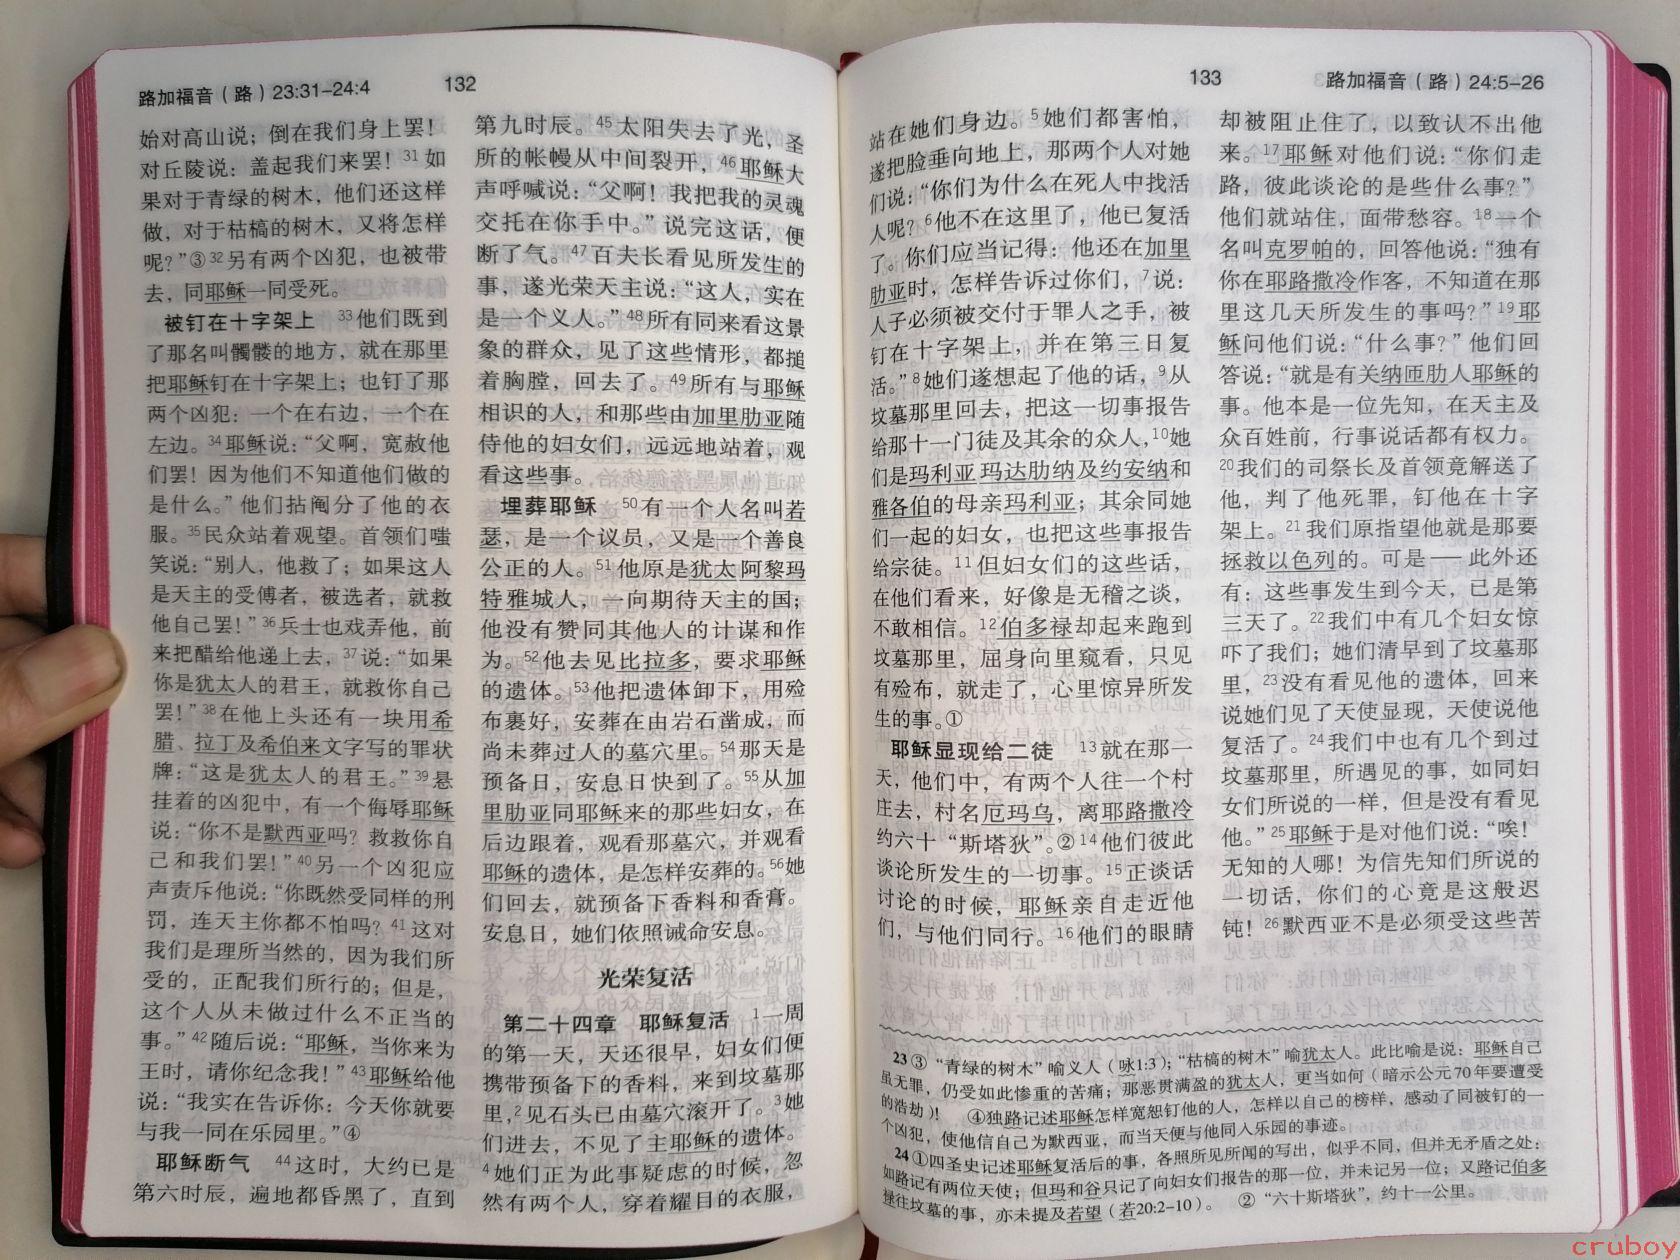 路加福音（路）23:31-24:4 132
始对高山说；倒在我们身上罢！
对丘陵说：盖起我们来罢！31如
果对于青绿的树木，他们还这样
做，对于枯槁的树木，又将怎样
呢？”③32另有两个凶犯，也被带
去，同耶稣一同受死。
被钉在十字架上 33他们既到
了那名叫髑髅的地方，就在那里
把耶稣钉在十字架上；也钉了那
两个凶犯：一个在右边，一个在
左边。34耶稣说：“父啊，宽赦他
们罢！因为他们不知道他们做的
是什么。”他们拈阄分了他的衣
服。35民众站着观望。首领们嗤
笑说：“别人，他救了；如果这人
是天主的受傅者，被选者，就救
他自己罢！”36兵士也戏弄他，前
来把醋给他递上去，37说：“如果
你是犹太人的君王，就救你自己
罢！”38在他上头还有一块用希
腊、拉丁及希伯来文字写的罪状
牌：“这是犹太人的君王。”39悬
挂着的凶犯中，有一个侮辱耶稣
说：“你不是默西亚吗？救救你自
己和我们罢！”40另一个凶犯应
声责斥他说：“你既然受同样的刑
罚，连天主你都不怕吗？41这对
我们是理所当然的，因为我们所
受的，正配我们所行的；但是，
这个人从未做过什么不正当的
事。”42随后说：“耶稣，当你来为
王时，请你纪念我！”43耶稣给他
说：“我实在告诉你：今天你就要
与我一同在乐园里。”④
耶稣断气 44这时，大约已是
第六时辰，遍地都昏黑了，直到
第九时辰。45太阳失去了光，圣
所的帐幔从中间裂开，46耶稣大
声呼喊说：“父啊！我把我的灵魂
交托在你手中。”说完这话，便
断了气。47百夫长看见所发生的
事，遂光荣天主说：“这人，实在
是一个义人。”48所有同来看这景
象的群众，见了这些情形，都搥
着胸膛，回去了。49所有与耶稣
相识的人，和那些由加里肋亚随
侍他的妇女们，远远地站着，观
看这些事。
埋葬耶稣 50有一个人名叫若
瑟，是一个议员，又是一个善良
公正的人。51他原是犹太阿黎玛
特雅城人，一向期待天主的国；
他没有赞同其他人的计谋和作
为。52他去见比拉多，要求耶稣
的遗体。53他把遗体卸下，用殓
布裹好，安葬在由岩石凿成，而
尚未葬过人的墓穴里。54那天是
预备日，安息日快到了。55从加
里肋亚同耶稣来的那些妇女，在
后边跟着，观看那墓穴，并观看
耶稣的遗体，是怎样安葬的。56她
们回去，就预备下香料和香膏。
安息日，她们依照诫命安息。
光荣复活
第二十四章 耶稣复活 1一周
的第一天，天还很早，妇女们便
携带预备下的香料，来到坟墓那
里，2见石头已由墓穴滚开了。3她
们进去，不见了主耶稣的遗体。
4她们正为此事疑虑的时候，忽
然有两个人，穿着耀目的衣服，
133 路加福音（路）24:5-26
站在她们身边。5她们都害怕，
遂把脸垂向地上，那两个人对她
们说：“你们为什么在死人中找活
人呢？6他不在这里了，他已复活
了。你们应当记得：他还在加里
肋亚时，怎样告诉过你们，7说：
人子必须被交付于罪人之手，被
钉在十字架上，并在第三日复
活。”8她们遂想起了他的话，9从
坟墓那里回去，把这一切事报告
给那十一门徒及其余的众人，10她
们是玛利亚玛达肋纳及约安纳和
雅各伯的母亲玛利亚；其余同她
们一起的妇女，也把这些事报告
给宗徒。11但妇女们的这些话，
在他们看来，好像是无稽之谈，
不敢相信。12伯多禄却起来跑到
坟墓那里，屈身向里窥看，只见
有殓布，就走了，心里惊异所发
生的事。①
耶稣显现给二徒 13就在那一
天，他们中，有两个人往一个村
庄去，村名厄玛乌，离耶路撒冷
约六十“斯塔狄”。②14他们彼此
谈论所发生的一切事。15正谈话
讨论的时候，耶稣亲自走近他
们，与他们同行。16他们的眼睛
却被阻止住了，以致认不出他
来。17耶稣对他们说：“你们走
路，彼此谈论的是些什么事？”
他们就站住，面带愁容。18一个
名叫克罗帕的，回答他说：“独有
你在耶路撒冷作客，不知道在那
里这几天所发生的事吗？”19耶
稣问他们说：“什么事？”他们回
答说：“就是有关纳匝肋人耶稣的
事。他本是一位先知，在天主及
众百姓前，行事说话都有权力。
20我们的司祭长及首领竟解送了
他，判了他死罪，钉他在十字
架上。21我们原指望他就是那要
拯救以色列的。可是——此外还
有：这些事发生到今天，已是第
三天了。22我们中有几个妇女惊
吓了我们；她们清早到了坟墓那
里，23没有看见他的遗体，回来
说她们见了天使显现，天使说他
复活了。24我们中也有几个到过
坟墓那里，所遇见的事，如同妇
女们所说的一样，但是没有看见
他。”25耶稣于是对他们说：“唉！
无知的人哪！为信先知们所说的
一切话，你们的心竟是这般迟
钝！26默西亚不是必须受这些苦
23③ “青绿的树木”喻义人（咏1:3）；“枯槁的树木”喻犹太人。此比喻是说：耶稣自己
虽无罪，仍受如此惨重的苦痛；那恶贯满盈的犹太人，更当如何（暗示公元70年要遭受
的浩劫）！ ④独路记述耶稣怎样宽恕钉他的人，怎样以自己的榜样，感动了同被钉的一
个凶犯，使他信自己为默西亚，而当天便与他同入乐园的事迹。
24①四圣史记述耶稣复活后的事，各照所见所闻的写出，似乎不同，但并无矛盾之处：
如路记有两位天使；但玛和谷只记了向妇女们报告的那一位，并未记另一位；又路记伯多
禄往坟墓的事，亦未提及若望（若20:2-10）。 ②“六十斯塔狄”，约十一公里。
cruboy